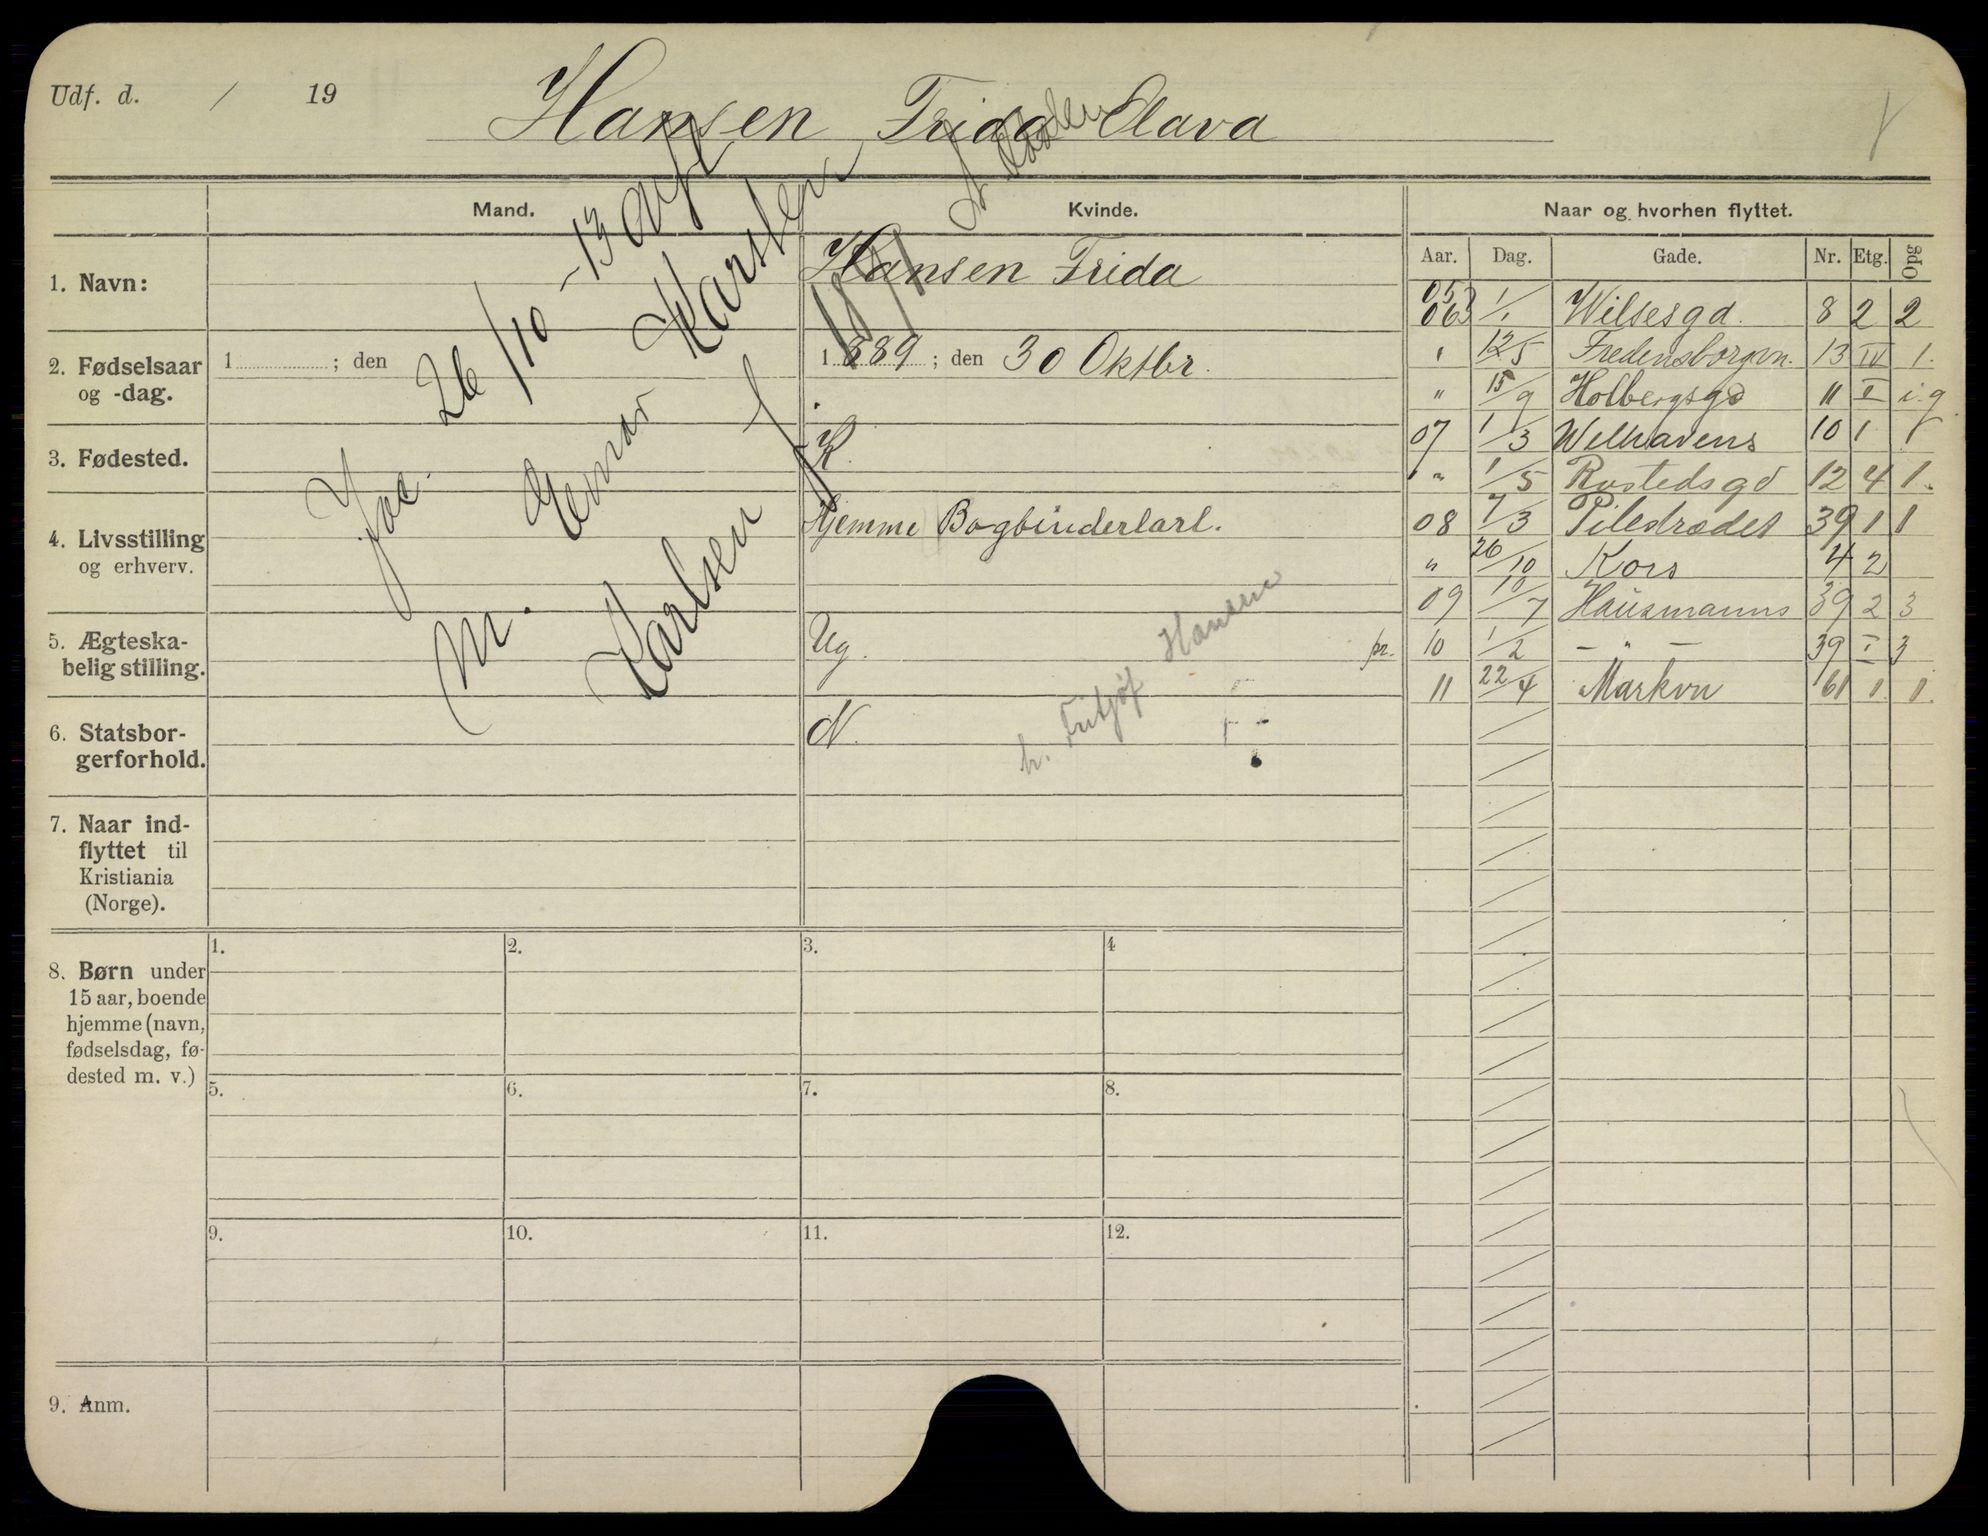 Udf. d. / 19
Hansen, Frida Olava
Mand.
Kvinde.
Naar og hvorhen flyttet.
Aar. Dag. Gade. Nr. Etg. Opg
1. Navn:
Hansen Frida
2. Fødselsaar og -dag.
1 ; den
1889 ; den 30 Oktbr.
3. Fødested.
K.
4. Livsstilling og erhverv.
Hjemme Bogbinderlærl.
5. Ægteskabelig stilling.
Ug.
pr.
6. Statsborgerforhold.
N.
7. Naar indflyttet til Kristiania (Norge).
8. Børn under 15 aar, boende hjemme (navn, fødselsdag, fødested m. v.)
1. 2. 3. 4
5. 6. 7. 8.
9. 10. 11. 12.
9. Anm.
05 06 1/1 Wilsesgd. 8 2 2
" 12/5 Fredensborgvn. 13 IV 1.
" 15/9 Holbergsgd 11 I i.g.
07 1/3 Welhavens 10 1 1
" 1/5 Rostedsgd 12 4 1.
08 7/3 Pilestrædet 39 1 1
" 26/10 Kors 4 2
09 10/7 Hausmanns 39 2 3
10 1/2 – " – 39 I 3
11 22/4 Markvn 61 1. 1.
26/10 – 13
m. Einar Karsten
Karlsen f. 1891
h. Fritjof Hansen